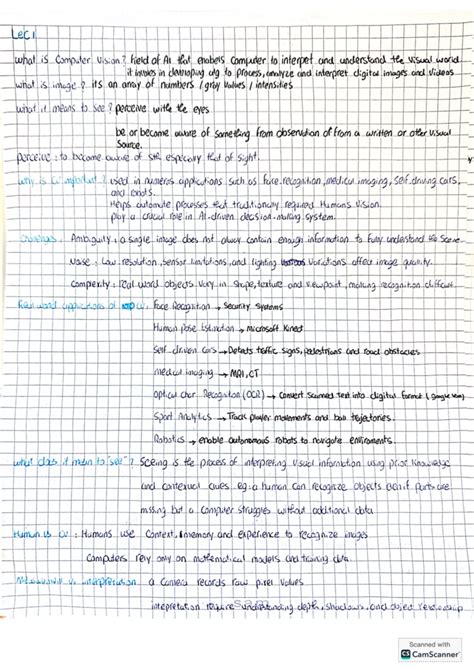 Lec 1
What is Computer Vision? Field of AI that enabels Computer to interpet and understand the visual world.
it invoves in devoloping alg to process, analyze and interpret digital images and videos
what is image? its an array of numbers / gray values / intensities
what it means to see? perceive with the eyes
be or become aware of something from observation of from a written or other visual
Source.
perceive: to become aware of sth especially that of sight.
why is CV important? used in numeros applications such as face recognition, medical imaging, self driving cars,
and robots.
Helps automate processes that traditionally required Humans Vision.
play a crucial role in AI-driven decision-making system.
Challenges: Ambiguity: a single image does not alway contain enough information to fully understand the scene
Noise: Low resolution, sensor limitations, and lighting variations affect image quality.
Complexity: real word objects vary in shape, texture and viewpoint, making recognition difficult.
Real word applications of CV: Face Recognition → Security systems
Human pose Estimation → Microsoft Kinect
Self driven cars → Detects traffic signs, pedestrians and road obstacles
medical imaging → MRI, CT
optical char Recogniton (OCR) → Convert scanned text into digital format (google lens)
Sport Analytics → Track player movements and ball trajectories.
Robotics → enable autonomous robots to navigate enviroments.
what does it mean to "see"? Seeing is the process of interpreting visual information using prior knowledge
and contexual cues e.g: a human can recognize objects even if parts are
missing but a computer struggles without additional data
Human vs CV: Humans use Context, memory and experience to recognize images
Computers rely only on mathematical models and training data.
Measurement vs interpretation: a Camera records raw pixel values
intepretation require understanding depth, shadows, and object relationship
Scanned with
CS CamScanner